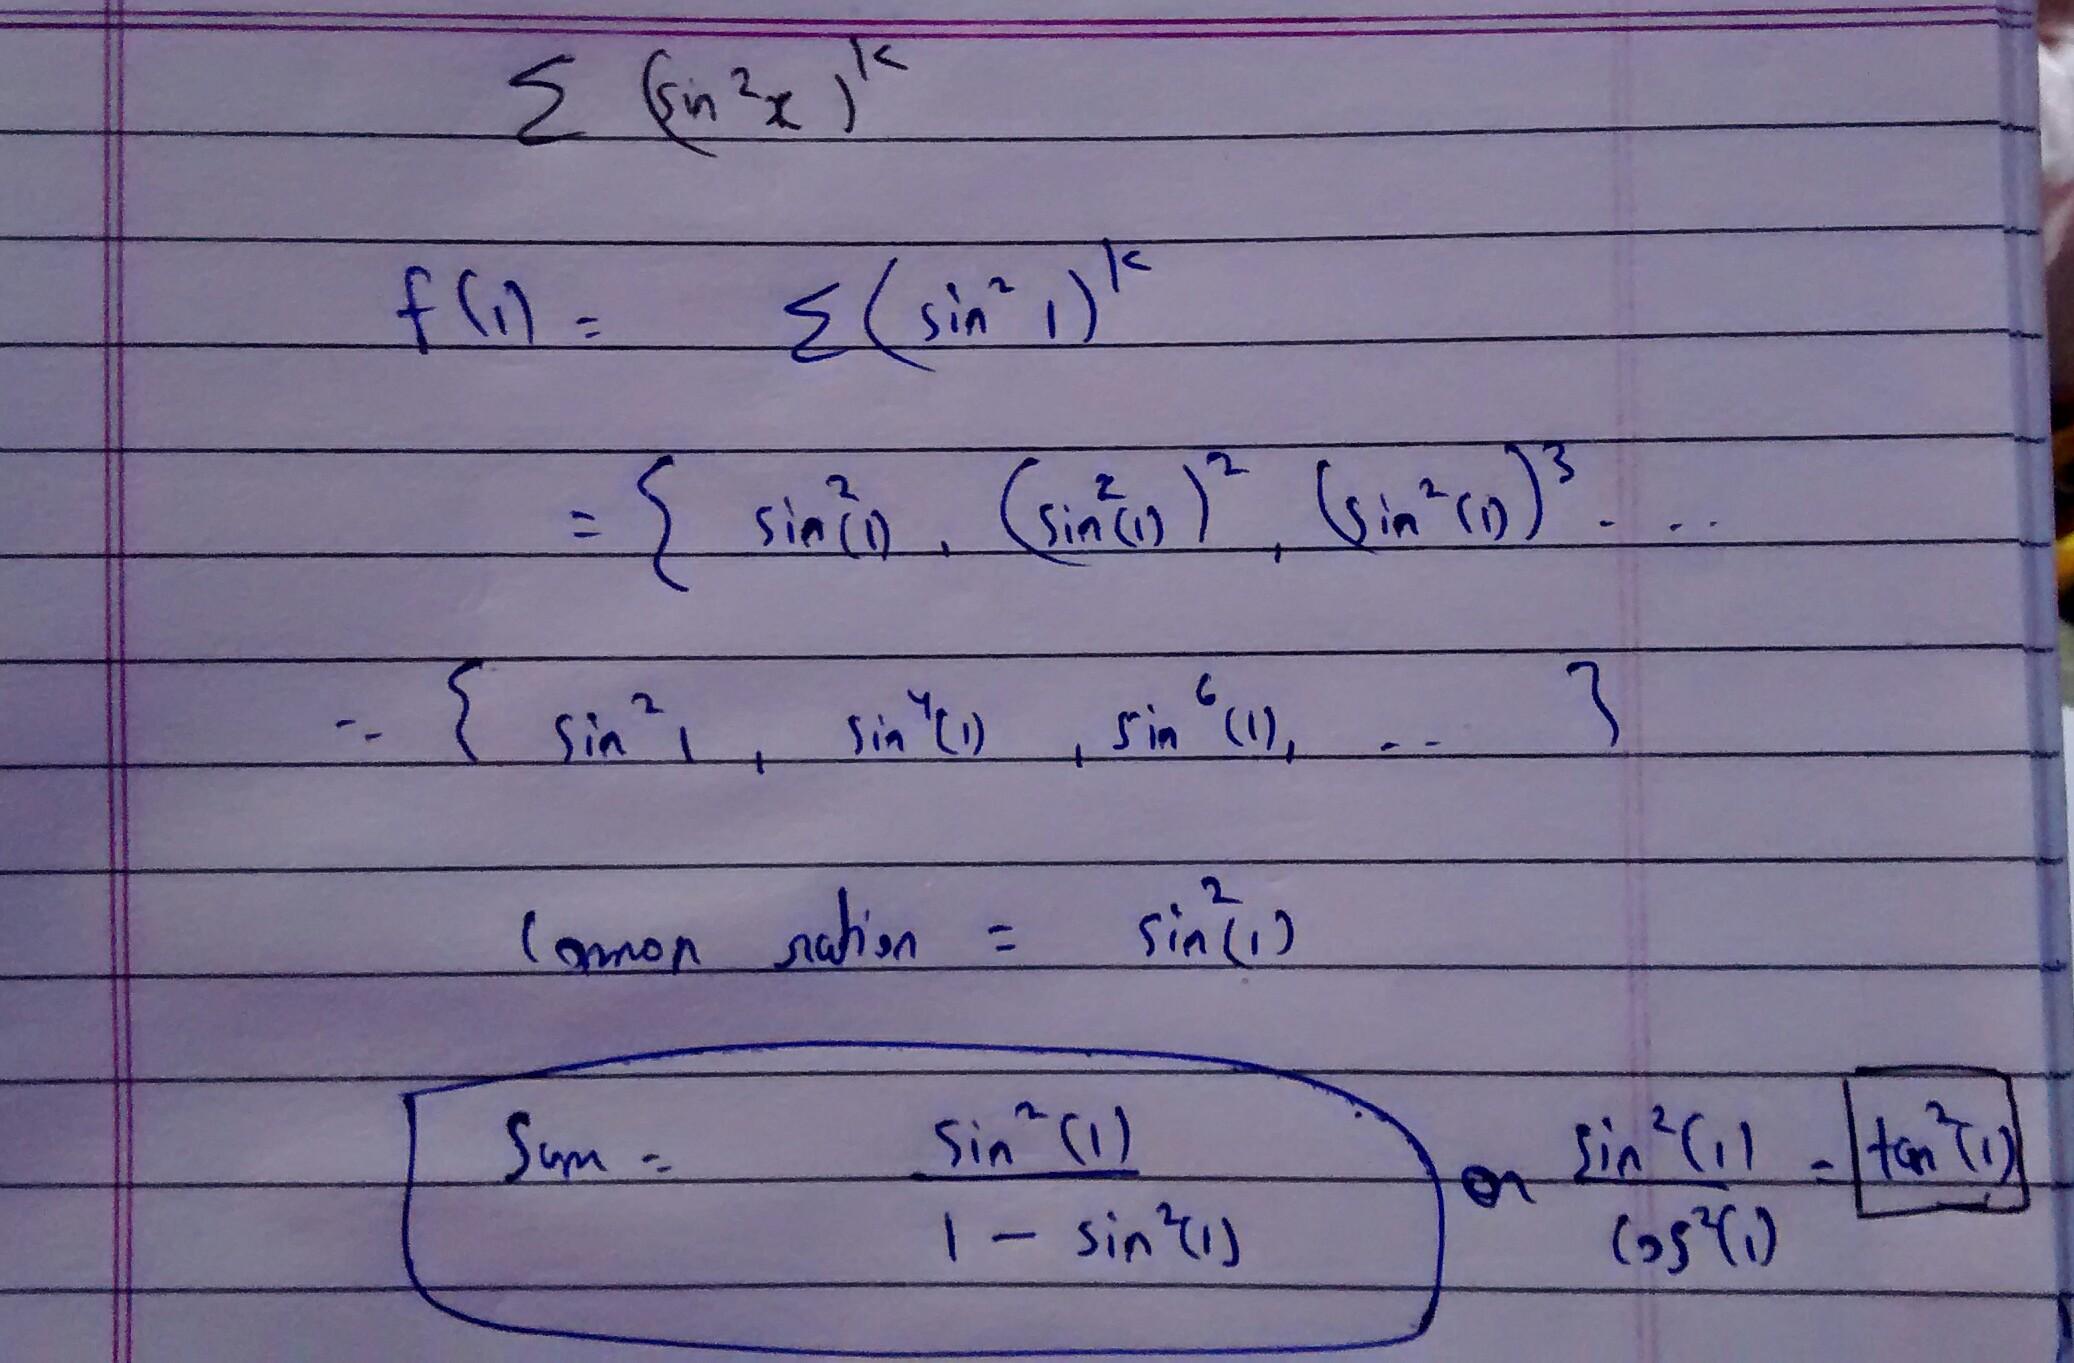 Σ (sin²x)ᵏ
f(1) = Σ(sin² 1)ᵏ
= { sin²(1), (sin²(1))², (sin²(1))³ . ...
-- { sin² 1, sin⁴(1), sin⁶(1), -- }
Common ration = sin²(1)
Sum = sin²(1) / 1 - sin²(1) or sin²(1) / cos²(1) = tan²(1)